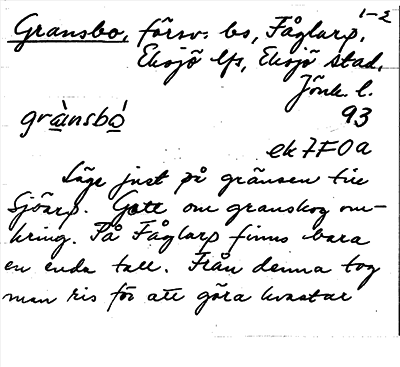 1-2
Gransbo, försv. bs, Fåglarp,
Eksjö lfs, Eksjö stad,
Jönk. l.
gra̱nsbo̱ 93
ek 7F0a
Läge just på gränsen till
Sjöarp. Gott om granskog om-
kring. På Fåglarp finns bara
en enda tall. Från denna tog
man ris för att göra kvastar